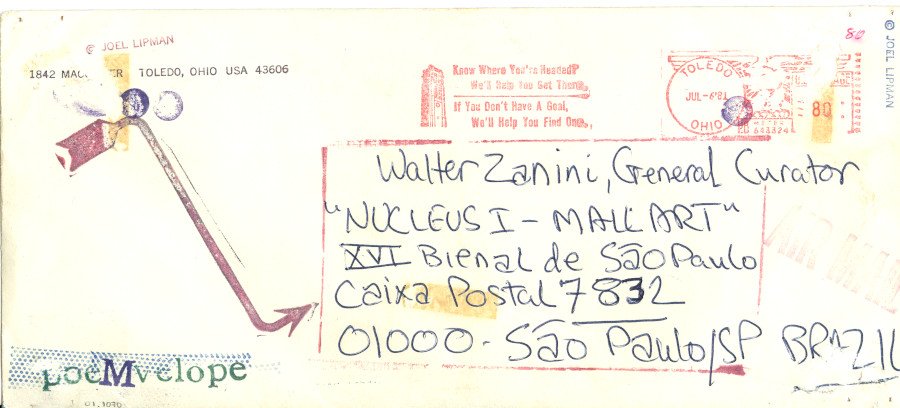 © JOEL LIPMAN
TOLEDO, OHIO USA 43606
1842
Know Where You're Headed?
We'll Help You Get There.
If You Don't Have A Goal,
We'll Help You Find One.
TOLEDO
JUL-6'81
OHIO
80
80
© JOEL LIPMAN
Walter Zanini, General Curator
"NUCLEUS I - MAIL ART"
XVI Bienal de São Paulo
Caixa Postal 7832
01000 - São Paulo/SP BRAZIL
AIR MAIL
poeMvelope